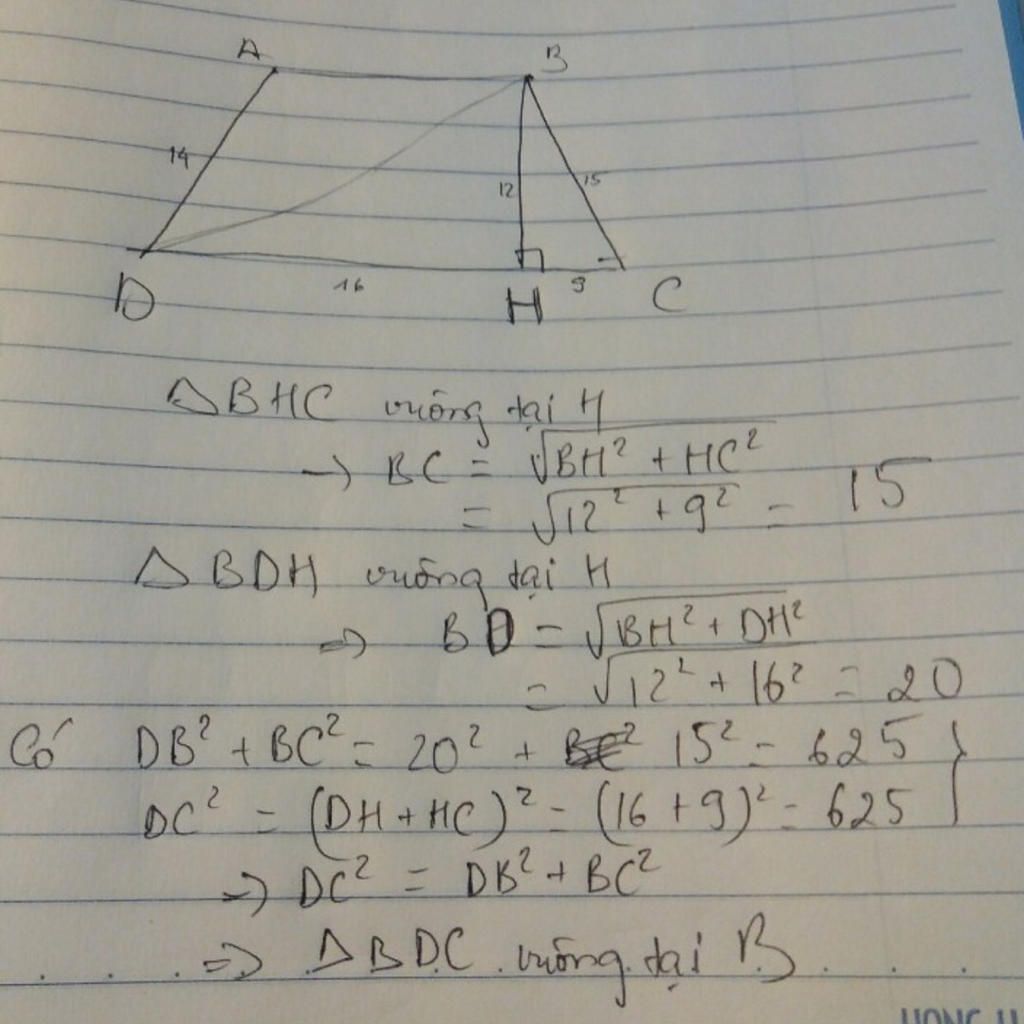 A
B
14
12
15
16
9
D
H
C
△BHC vuông tại H
→ BC = √BH² + HC²
= √12² + 9² = 15
△BDH vuông tại H
=> BD = √BH² + DH²
= √12² + 16² = 20
Có DB² + BC² = 20² + 15² = 625
DC² = (DH + HC)² = (16 + 9)² = 625 }
=> DC² = DB² + BC²
=> △BDC vuông tại B